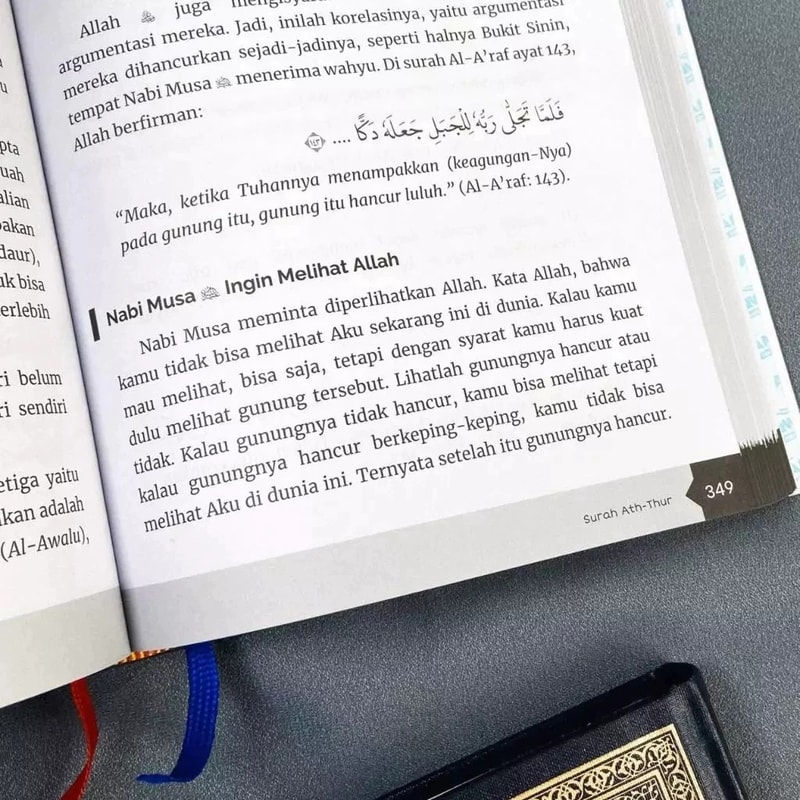 pta
uah
alian
pakan
daur),
uk bisa
erlebih
ri belum
ri sendiri
etiga yaitu
kan adalah
(Al-Awalu),
Allah ﷻ juga
argumentasi mereka. Jadi, inilah korelasinya, yaitu argumentasi
mereka dihancurkan sejadi-jadinya, seperti halnya Bukit Sinin,
tempat Nabi Musa menerima wahyu. Di surah Al-A’raf ayat 143,
Allah berfirman:
فَلَمَّا تَجَلّٰى رَبُّهٗ لِلْجَبَلِ جَعَلَهٗ دَكًّا .... ﴿١٤٣﴾
“Maka, ketika Tuhannya menampakkan (keagungan-Nya)
pada gunung itu, gunung itu hancur luluh.” (Al-A’raf: 143).
Nabi Musa Ingin Melihat Allah
Nabi Musa meminta diperlihatkan Allah. Kata Allah, bahwa
kamu tidak bisa melihat Aku sekarang ini di dunia. Kalau kamu
mau melihat, bisa saja, tetapi dengan syarat kamu harus kuat
dulu melihat gunung tersebut. Lihatlah gunungnya hancur atau
tidak. Kalau gunungnya tidak hancur, kamu bisa melihat tetapi
kalau gunungnya hancur berkeping-keping, kamu tidak bisa
melihat Aku di dunia ini. Ternyata setelah itu gunungnya hancur.
Surah Ath-Thur 349